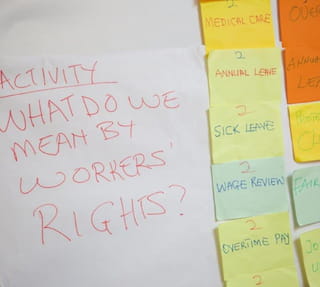 ACTIVITY
WHAT DO WE
MEAN BY
WORKERS'
RIGHTS?
2
MEDICAL CARE
2
ANNUAL LEAVE
2
SICK LEAVE
2
WAGE REVIEW
2
OVERTIME PAY
2
OVER
ANNUAL
LEA
FAIR
JO